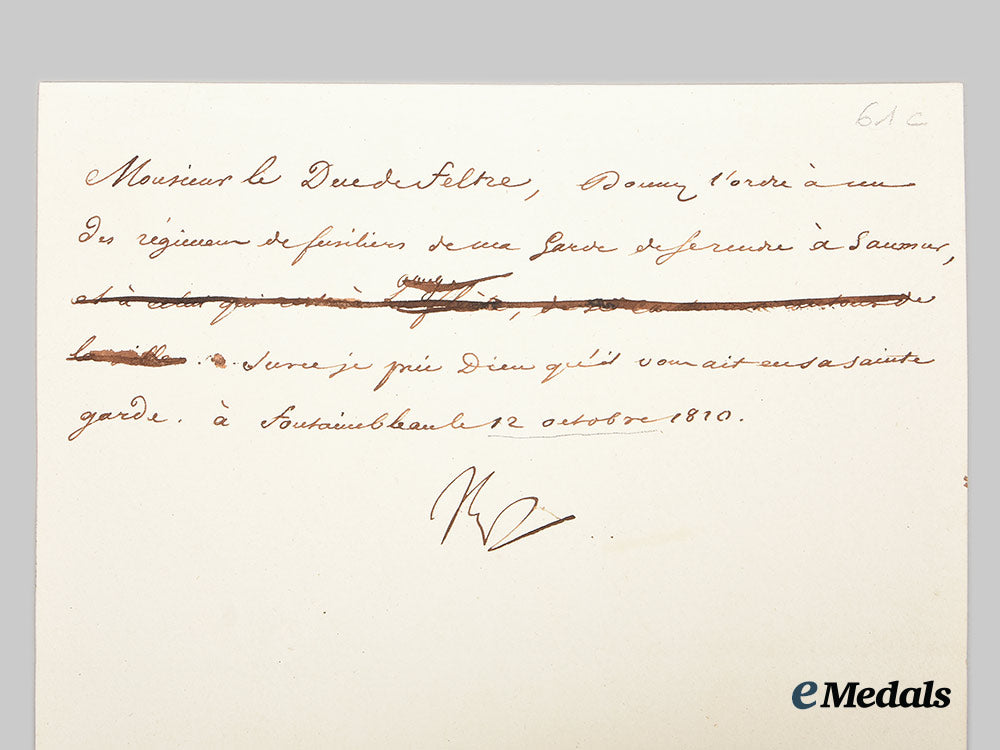 61 c
Monsieur le Duc de Feltre, Donnez l'ordre à un
des régimens de fusiliers de ma Garde de se rendre à Saumur,
et à celui qui reste à de
la ville
Sur ce je prie Dieu qu'il vous ait en sa sainte
garde. à Fontainebleau le 12 octobre 1810.
Np
eMedals